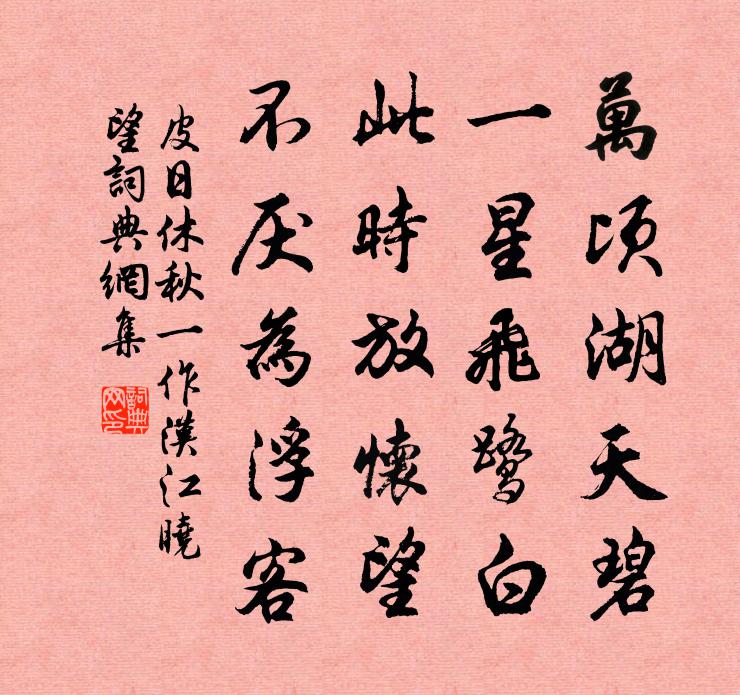 萬頃湖天碧
一星飛鷺白
此時放懷望
不厌為浮客
皮日休秋一作漢江曉
望詞典網集
詞典
网印